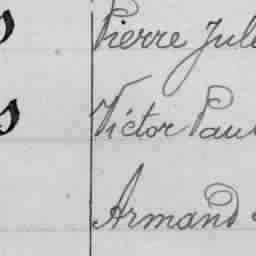 Pierre Jul
Victor Paul
Armand